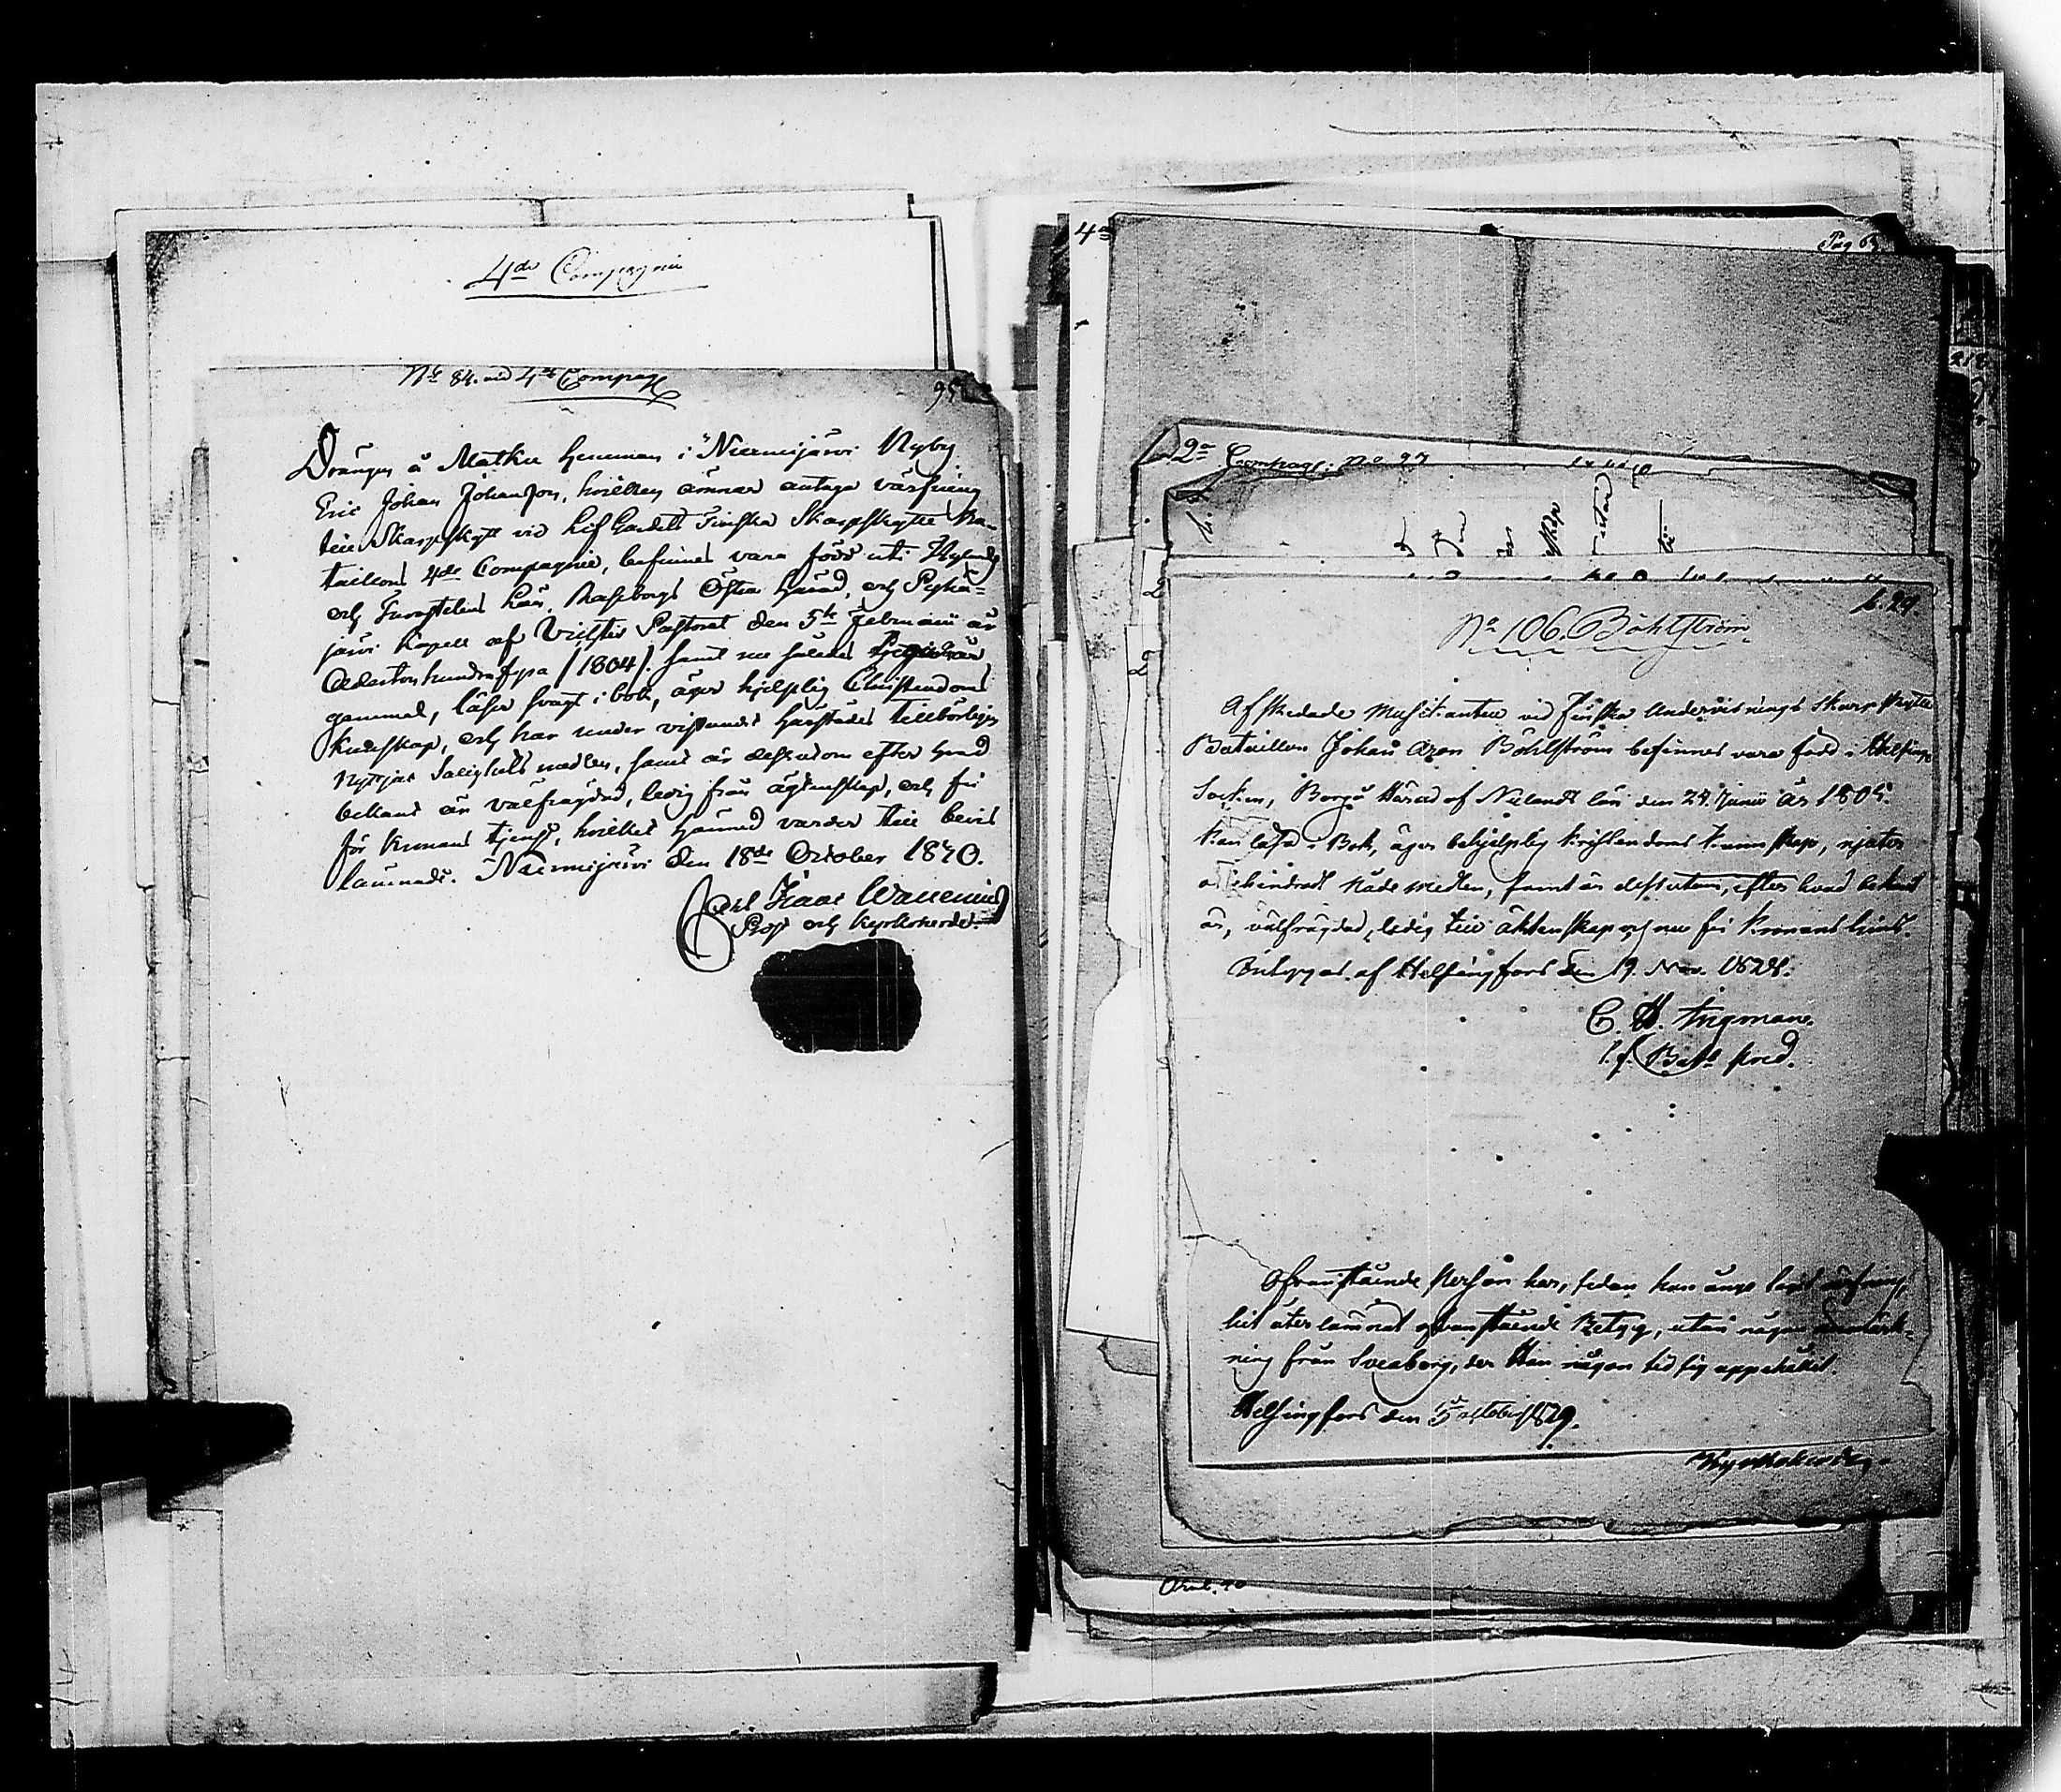 4de Compagnie
No 84. vid 4de Compag
95
Drängen å Matku hemman i Nurmijärvi Nyby
Eric Johan Johansson, hvilken ämnar antaga värfning
till Skarpskytt vid Lif Gardets Finska Skarpskytte Ba-
taillons 4de Compagnie, befinnes vara född uti Nylands
och Tavastehus Län, Raseborgs Östra Härad, och Pyhä-
järvi Kapell af Vichtis Pastorat den 5te Februarii år
Adertonhundrafyra /1804/. samt nu således
gammal, läser svagt i bok, äger hjelplig Christendoms
kundskap, och har under vistandet härstädes tillbörligen
nyttjat Salighets medlen, samt är dessutom efter hvad
bekant är välfrägdad, ledig från ägtenskap, och fri
för Kronans tjenst, hvilket härmed varder till bevis
lämnadt. Nurmijärvi den 18de October 1820.
Carl Isaac Wallenius
Prost och Kyrkoherde.
4de
Pag 63
2a Compagn: No 97
b. 29.
No 106. Böhlström.
Afskedade Musikanten vid Finska Undervisnings Skarpskytte
Bataillon Johan Aron Böhlström befinnes vara född i Helsinge
Socken, Borgå Härad af Nylands län den 24. Junii år 1805.
kan läsa i Bok, äger behjelplig kristendoms kunnskap, njutit
obehindradt Nådemedlen, samt är dessutom, efter hvad bekant
är, välfrägdad, ledig till äktenskap och nu fri Kronans tjenst.
Betygas af Helsingfors den 19. Nov. 1828.
C. H. Ingman.
t. f. Batts pred.
Ofvanstående Person har, sedan han ånyo tagit värfning,
hit återlämnat ofvanstående Betyg, utan någon anmärk-
ning från Sveaborg, der Han någon tid sig uppehållit.
Helsingfors den 5 october 1829.
Kyrkoherde.